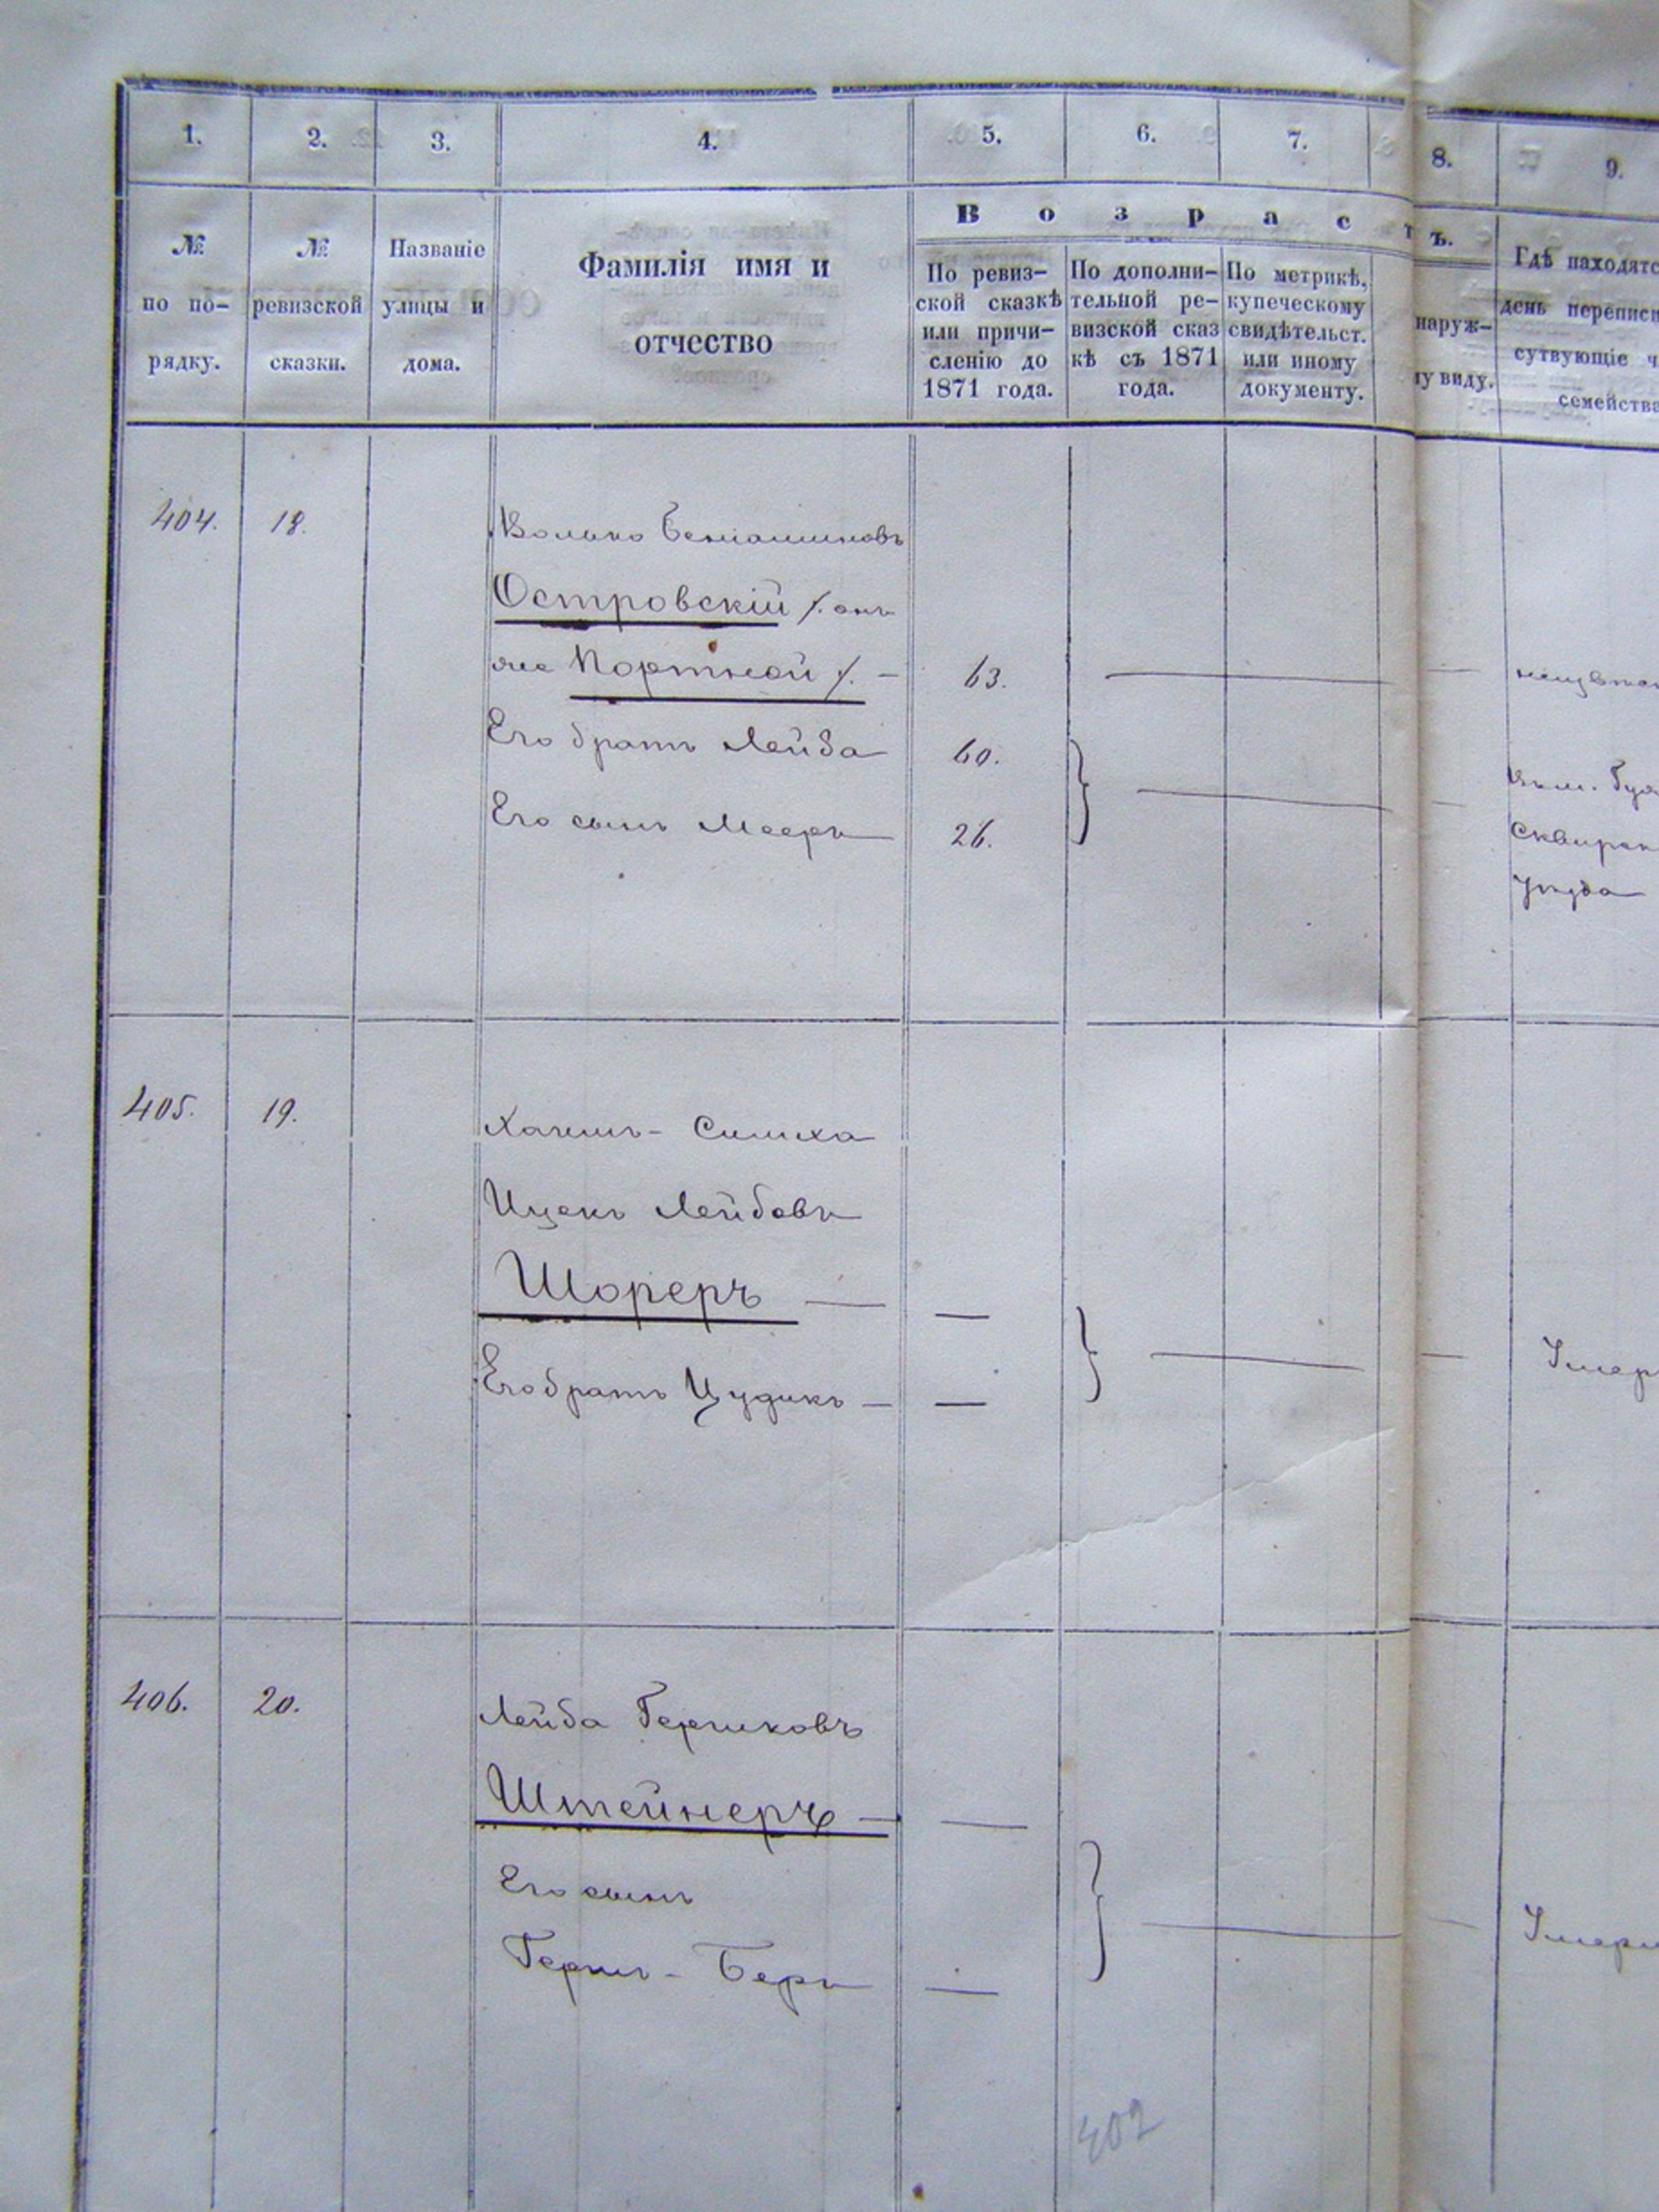 1. 2. 3. 4. 5. 6. 7. 8. 9.
№ по по-рядку.
№ ревизской сказки.
Названіе улицы и дома.
Фамилія имя и
отчество
Возрастъ.
По ревиз-
ской сказкѣ
или причи-
сленію до
1871 года.
По дополни-
тельной ре-
визской сказ
кѣ съ 1871
года.
По метрикѣ,
купеческому
свидѣтельст.
или иному
документу.
наруж-
у виду.
Гдѣ находятс
день переписи
сутвующіе ч
семейства
404. 18.
Волько Беніаминовъ
Островскій /. онъ
же Портной /. — 63. —
Его брать Лейба 60.
Его сынъ Мееръ 26. —
Сквирск
уѣзда
405. 19.
Ицекъ Лейбовъ
Шореръ — —
Его братъ Цудикъ — —
Умер
406. 20.
Лейба Гершковъ
Штейнеръ — —
Его сынъ
Гершъ-Беръ —
Умер
402